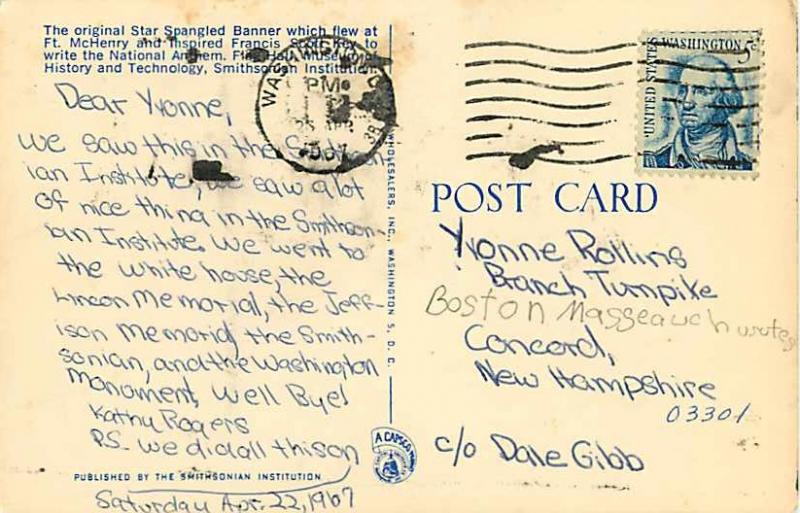 The original Star Spangled Banner which flew at
Ft. McHenry and inspired Francis Scott Key to
write the National Anthem. Flag Hall, Museum of
History and Technology, Smithsonian Institution.
Dear Yvonne,
we saw this in the Smithson
ian Institute, we saw a lot
of nice thing in the Smithson-
ian Institute. We went to
the white house, the
Lincon Memorial, the Jeff-
ison Memorial, the Smith-
sonian, and the Washington
Monument, Well Bye!
Kathy Rogers
P.S. we did all this on
Saturday Apr. 22, 1967
PUBLISHED BY THE SMITHSONIAN INSTITUTION
WHOLESALERS, INC., WASHINGTON 5, D. C.
A CAPSCO
WASHINGTON
PM
25 APR
1967
UNITED STATES
WASHINGTON 5c
POST CARD
Yvonne Rollins
Branch Turnpike
Boston Masseauch
Concord,
New Hampshire
03301
c/o Dale Gibb